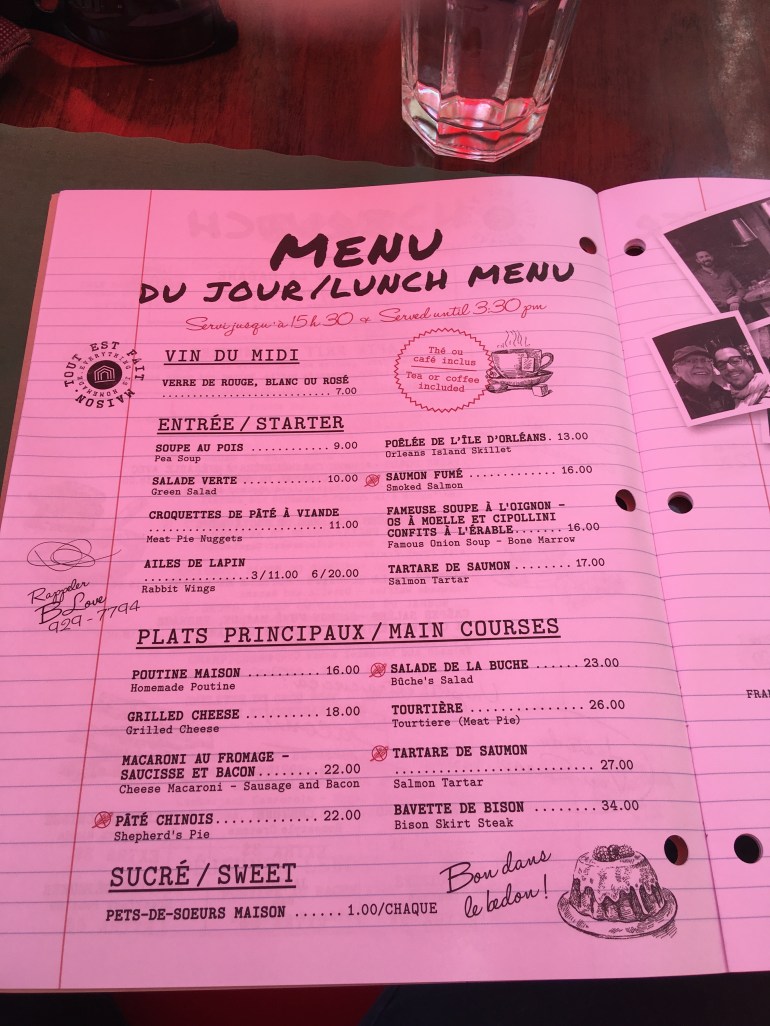 MENU
DU JOUR/LUNCH MENU
Servi jusqu'à 15h30 & Served until 3:30 pm
TOUT EST FAIT MAISON
EVERYTHING IS HOMEMADE
VIN DU MIDI
VERRE DE ROUGE, BLANC OU ROSÉ
............................ 7.00
Thé ou
café inclus
Tea or coffee
included
ENTRÉE / STARTER
SOUPE AU POIS ............ 9.00
Pea Soup
SALADE VERTE ............ 10.00
Green Salad
CROQUETTES DE PÂTÉ À VIANDE
............................ 11.00
Meat Pie Nuggets
AILES DE LAPIN
................3/11.00 6/20.00
Rabbit Wings
POÊLÉE DE L'ÎLE D'ORLÉANS. 13.00
Orleans Island Skillet
SAUMON FUMÉ .............. 16.00
Smoked Salmon
FAMEUSE SOUPE À L'OIGNON -
OS À MOELLE ET CIPOLLINI
CONFITS À L'ÉRABLE........ 16.00
Famous Onion Soup - Bone Marrow
TARTARE DE SAUMON ........ 17.00
Salmon Tartar
Rappeler
B Love
929-7794
PLATS PRINCIPAUX / MAIN COURSES
POUTINE MAISON ........... 16.00
Homemade Poutine
GRILLED CHEESE .......... 18.00
Grilled Cheese
MACARONI AU FROMAGE -
SAUCISSE ET BACON........ 22.00
Cheese Macaroni - Sausage and Bacon
PÂTÉ CHINOIS............. 22.00
Shepherd's Pie
SALADE DE LA BUCHE ...... 23.00
Bûche's Salad
TOURTIÈRE ............... 26.00
Tourtiere (Meat Pie)
TARTARE DE SAUMON
............................ 27.00
Salmon Tartar
BAVETTE DE BISON ........ 34.00
Bison Skirt Steak
SUCRÉ / SWEET
PETS-DE-SOEURS MAISON ...... 1.00/CHAQUE
Bon dans
le bedon!